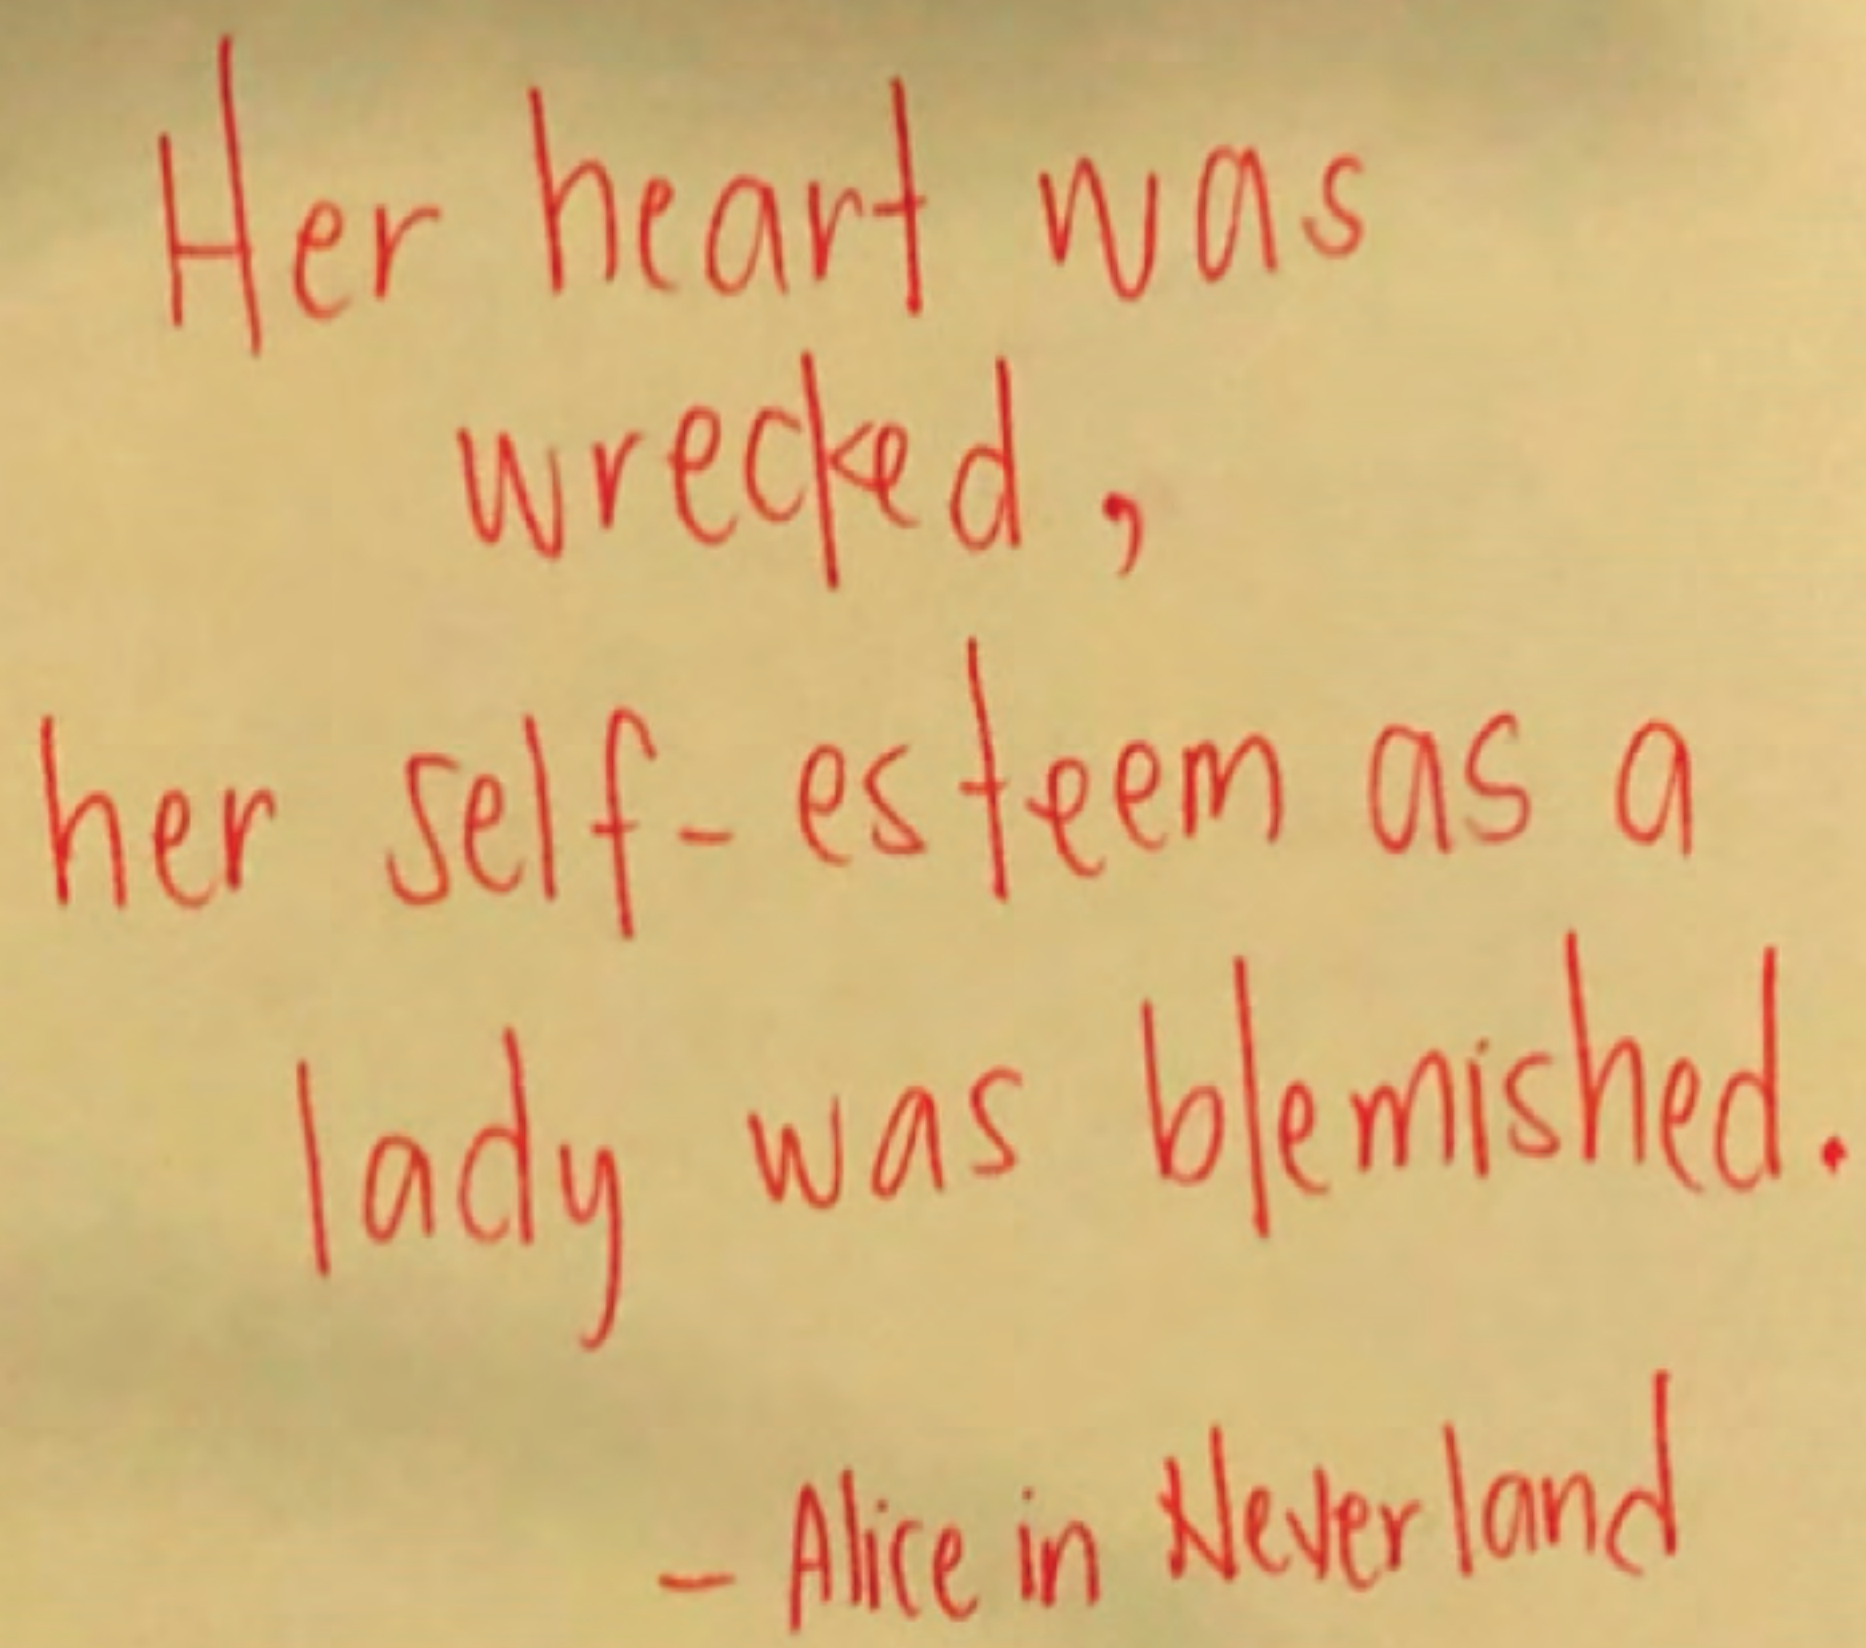 Her heart was
wrecked,
her self-esteem as a
lady was blemished.
- Alice in Neverland